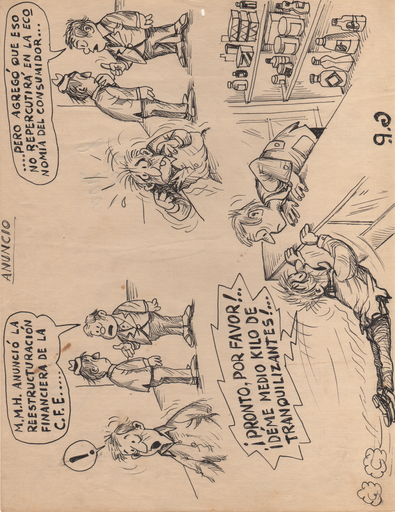 ANUNCIO
M.M.H. ANUNCIÓ LA
REESTRUCTURACIÓN
FINANCIERA DE LA
C.F.E.....
!
.....PERO AGREGÓ QUE ESO
NO REPERCUTIRA EN LA ECO
NOMÍA DEL CONSUMIDOR...
¡PRONTO, POR FAVOR!..
¡DEME MEDIO KILO DE
TRANQUILIZANTES!...